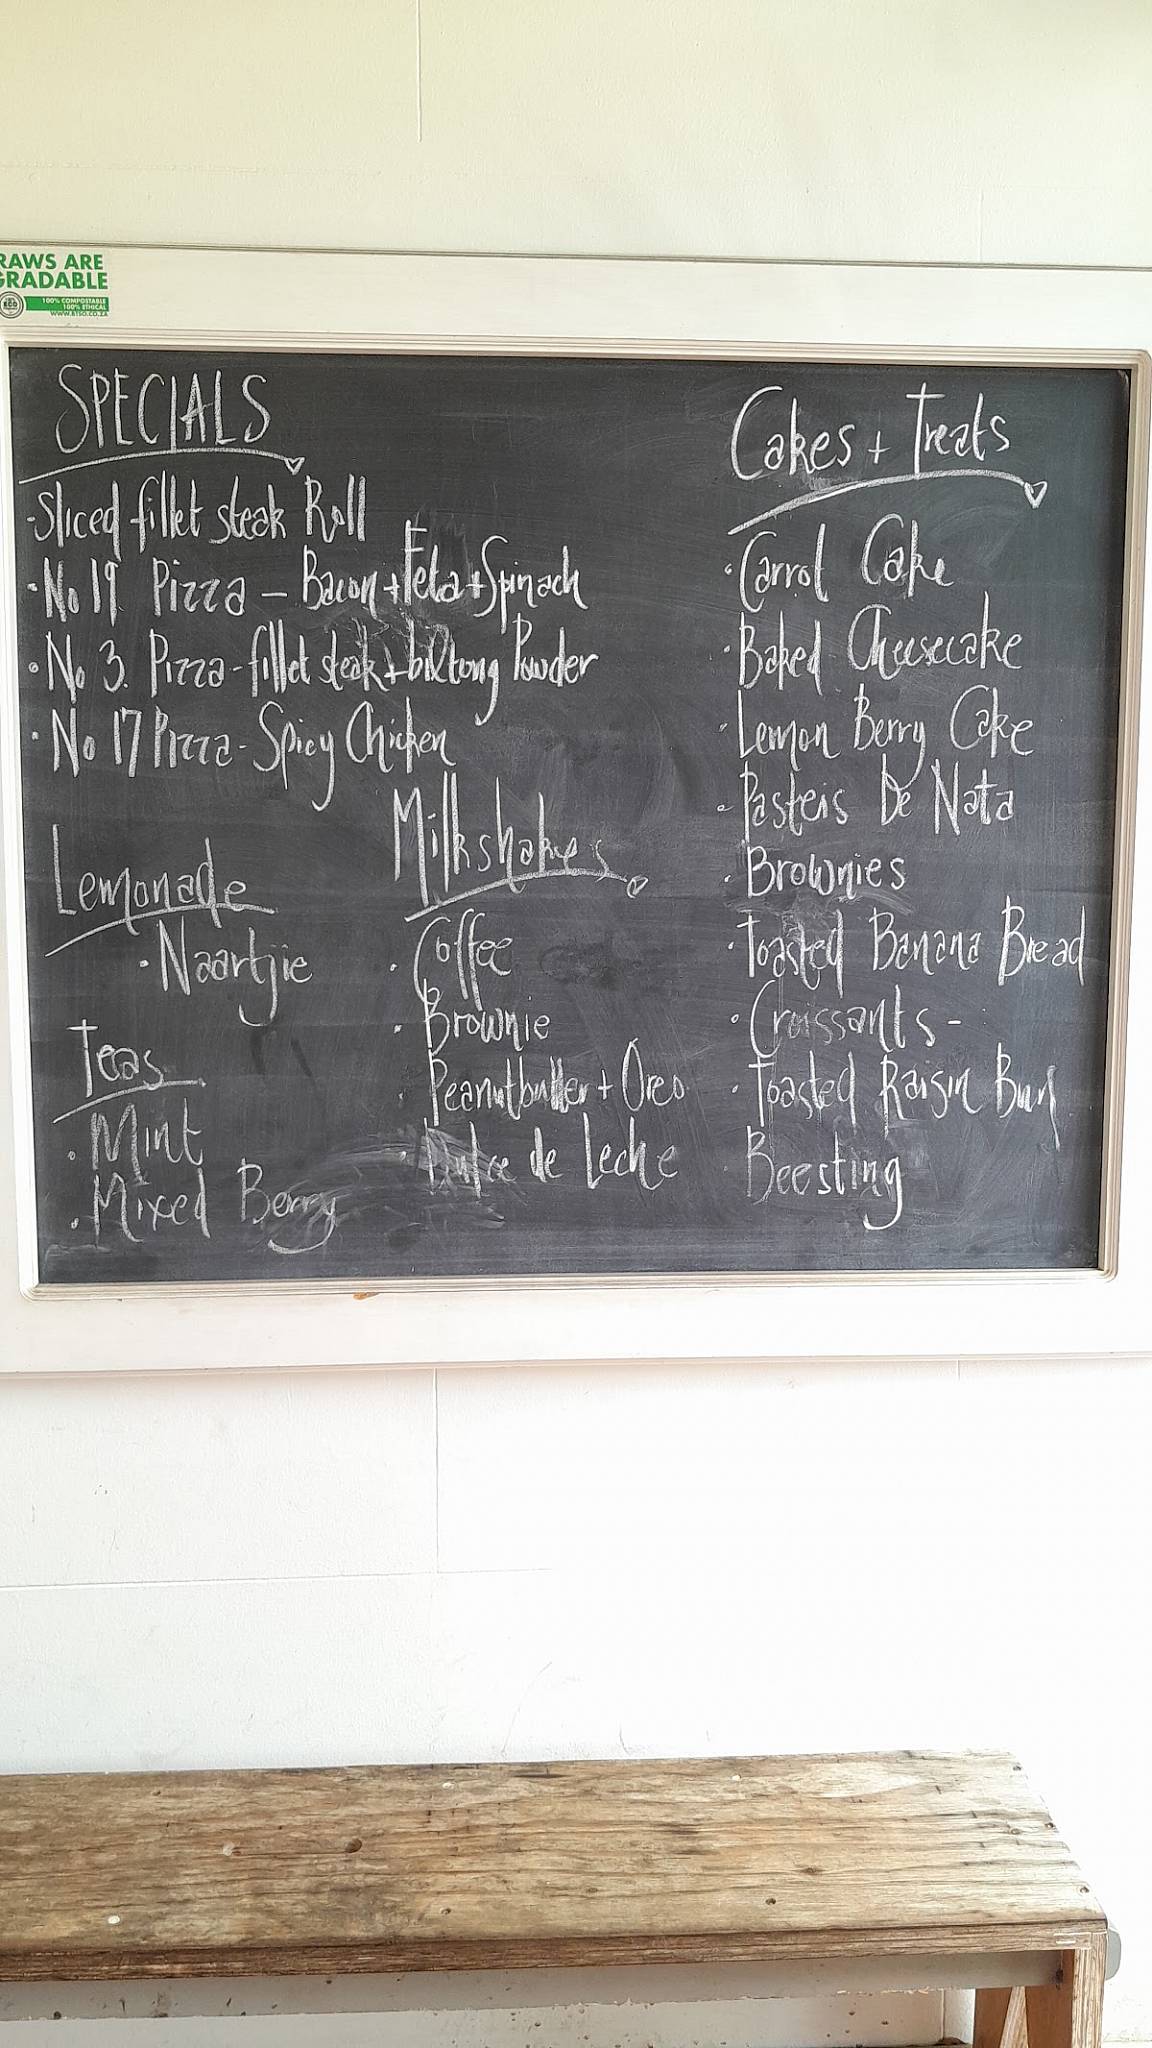 RAWS ARE
GRADABLE
100% COMPOSTABLE
100% ETHICAL
WWW.BTSO.CO.ZA
SPECIALS
-Sliced fillet steak Roll
·No 19 Pizza - Bacon + Feta + Spinach
·No 3. Pizza - fillet steak + biltong Powder
·No 17 Pizza - Spicy Chicken
Lemonade
·Naartjie
Teas
·Mint
·Mixed Berry
Milkshakes
·Coffee
·Brownie
·Peanutbutter + Oreo
·Dulce de Leche
Cakes + Treats
·Carrot Cake
·Baked Cheesecake
·Lemon Berry Cake
·Pasteis De Nata
·Brownies
·Toasted Banana Bread
·Croissants -
·Toasted Raisin Bun
·Beesting